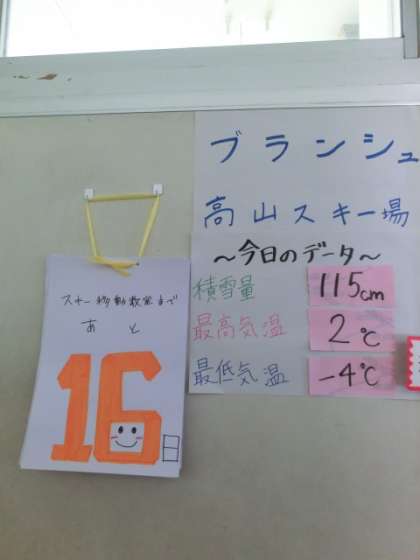 ブランシュ
高山スキー場
～今日のデータ～
積雪量 115cm
最高気温 2℃
最低気温 -4℃
スキー移動教室まで
あと
16日